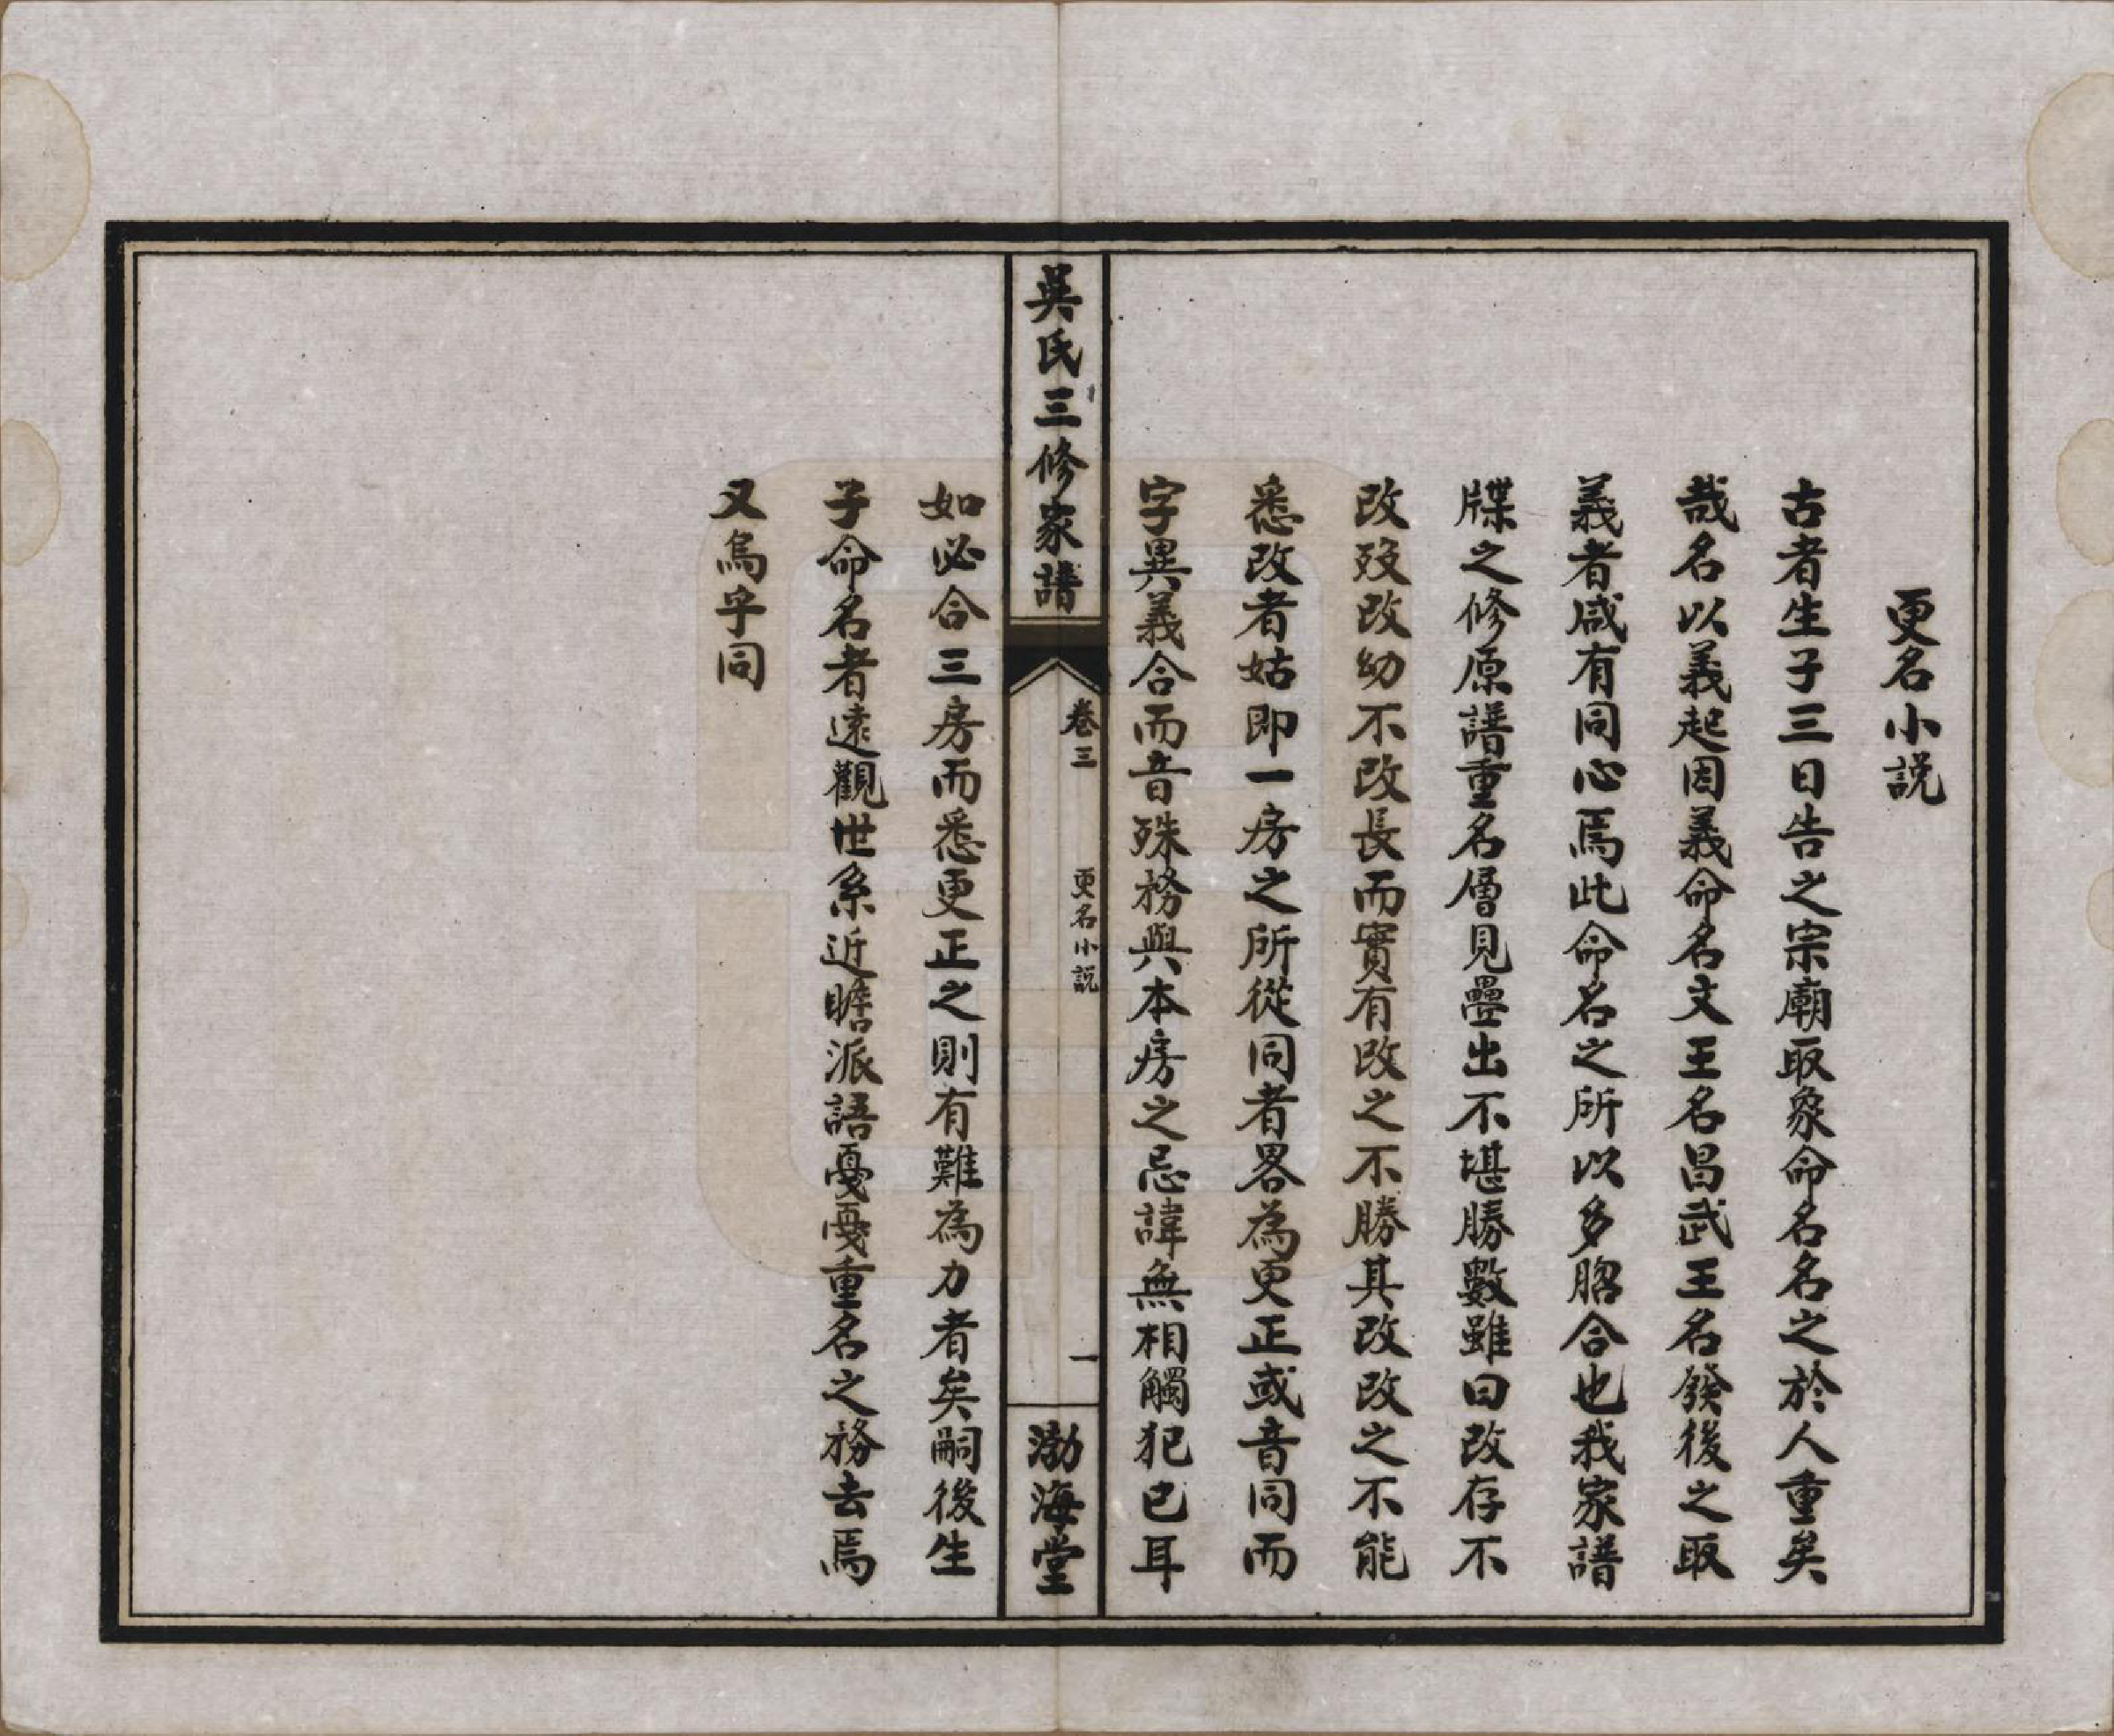 更名小説
古者生子三日告之宗廟取象命名名之於人重矣
哉名以義起因義命名文王名昌武王名發後之取
義者咸有同心焉此命名之所以多脗合也我家譜
牒之修原譜重名層見疊出不堪勝數雖曰改存不
改歿改幼不改長而實有改之不勝其改改之不能
悉改者姑即一房之所從同者畧為更正或音同而
字異義合而音殊務與本房之忌諱無相觸犯已耳
吳氏三修家譜
卷三
更名小説
一
渤海堂
如必合三房而悉更正之則有難為力者矣嗣後生
子命名者遠觀世系近瞻派語戞戞重名之務去焉
又烏乎同